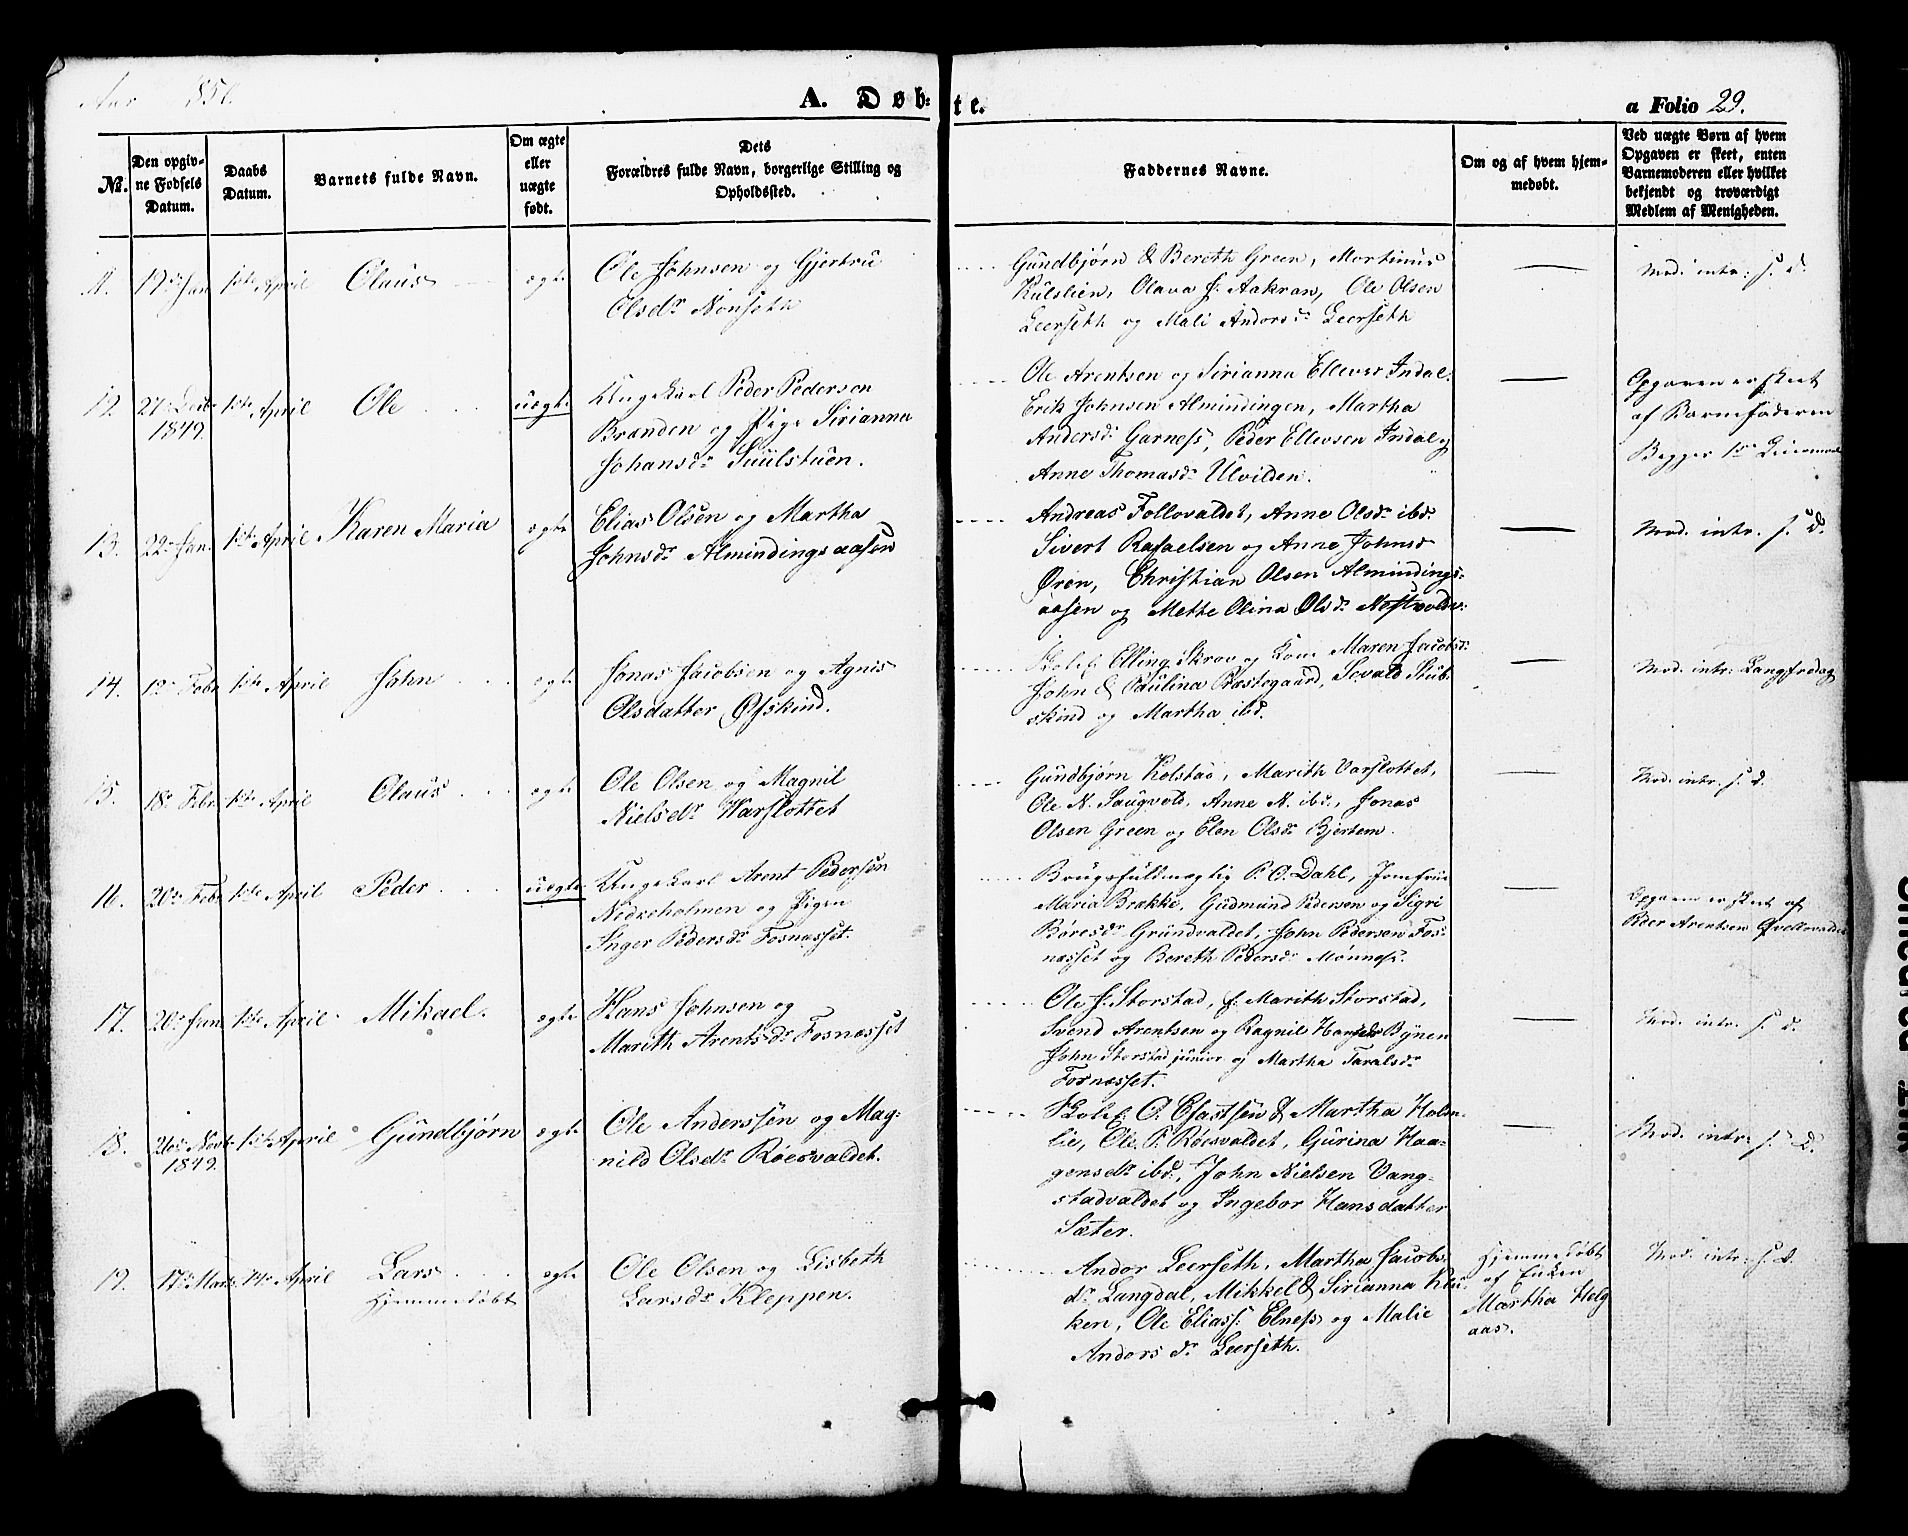 Aar 1850.
A. Døbte.
a Folio 29.
No.
Den opgiv-
ne Fødsels
Datum.
Daabs
Datum.
Barnets fulde Navn.
Om ægte
eller
uægte
født.
Dets
Forældres fulde Navn, borgerlige Stilling og
Opholdssted.
Faddernes Navne.
Om og af hvem hjem-
medøbt.
Ved uægte Børn af hvem
Opgaven er skeet, enten
Barnemoderen eller hvilket
bekjendt og troværdigt
Medlem af Menigheden.
11. 19de Jan 1ste April Olaus ægte
Ole Johnsen og Gjertru
Olsdr Nonseth
Gundbjørn & Bereth Green, Mortinus
Kulslien, Olava J. Aakran, Ole Olsen
Leerseth og Mali Andorsdr Leerseth
— Mod. intr: s. d.
12. 27de Decbr
1849. 1ste April Ole uægte
Ungekarl Peder Pedersen
Branden og Pige Sirianna
Johansdr Suulstuen.
Ole Arentsen og Sirianna Ellevsr Indal.
Erik Johnsen Almindingen, Martha
Andersdr Garness, Peder Ellevsen Indal og
Anne Thomasdr Ulvilden.
— Opgaven er skeet
af Barnefaderen
Begges 1ste
13. 22de Jan. 1ste April Karen Maria ægte
Elias Olsen og Martha
Johnsdr Almindingsaasen
Andreas Follovaldet, Anne Olsdr ibd.
Sivert Rafaelsen og Anne Johnsd
Ören, Christian Olsen Almindings-
aasen og Mette Olina Olsdr
— Mod. intr. s. d.
14. 12te Febr 1ste April John ægte
Jonas Jacobsen og Agnis
Olsdatter Øfskind.
Elling Skrov og Kone Maren Jacobsdr
John & Paulina Præstegaard, Sevald Stub-
skind og Martha ibd.
— Mod. intr: Langfredag
15. 18de Febr 1ste April Olaus ægte
Ole Olsen og Magnil
Nielsdr Varslottet
Gundbjørn Kolstad, Marith Varslottet,
Ole N. Saugvold, Anne N. ibd., Jonas
Olsen Green og Elen Olsdr Bjertem.
— Mod. intr. s. d.
16. 20de Febr 1ste April Peder uægte
Ungekarl Arent Pedersen
Nedreholmen og Pigen
Inger Pedersdr Fosnæsset.
Brugsfuldmægtig P. O. Dahl, Jomfrue
Maria Brække, Gudmund Pedersen og Sigri
Børesdr Grundvaldet, John Pedersen Fos-
næsset og Bereth Pedersdr Mønness.
— Opgaven er skeet af
Peder Arentsen
17. 20de Jan 1ste April Mikael. ægte
Hans Johnsen og
Marith Arentsdr Fosnæsset
Ole J. Storstad, J. Marith Storstad,
Svend Arentsen og Ragnil Hansdr Bynen
John Storstad junior og Martha Taralsdr
Fornæsset.
— Mod. intr. s. d.
18. 26de Novbr
1849. 1ste April Gundbjørn ægte
Ole Anderssen og Mag-
nild Olsdr Röesvaldet.
O. Efastsen & Martha Holm-
lie, Ole P. Röesvaldet, Gurina Haa-
gensdr ibd., John Nielsen Vang-
stadvaldet og Ingebor Hansdatter
Sæter.
— Mod. intr: s. d.
19. 17de Marts 14de April Lars
Hjemmedøbt ægte
Ole Olsen og Lisbeth
Larsdr Kleppen.
Andor Leerseth, Martha Jacobs-
dr Langdal, Mikkel & Sirianna Klu-
ken, Ole Eliass: Elness og Malie
Andorsdr Leerseth.
Hjemmedøbt
af Enken
Martha Helg
aas.
Mod. intr: s. d.